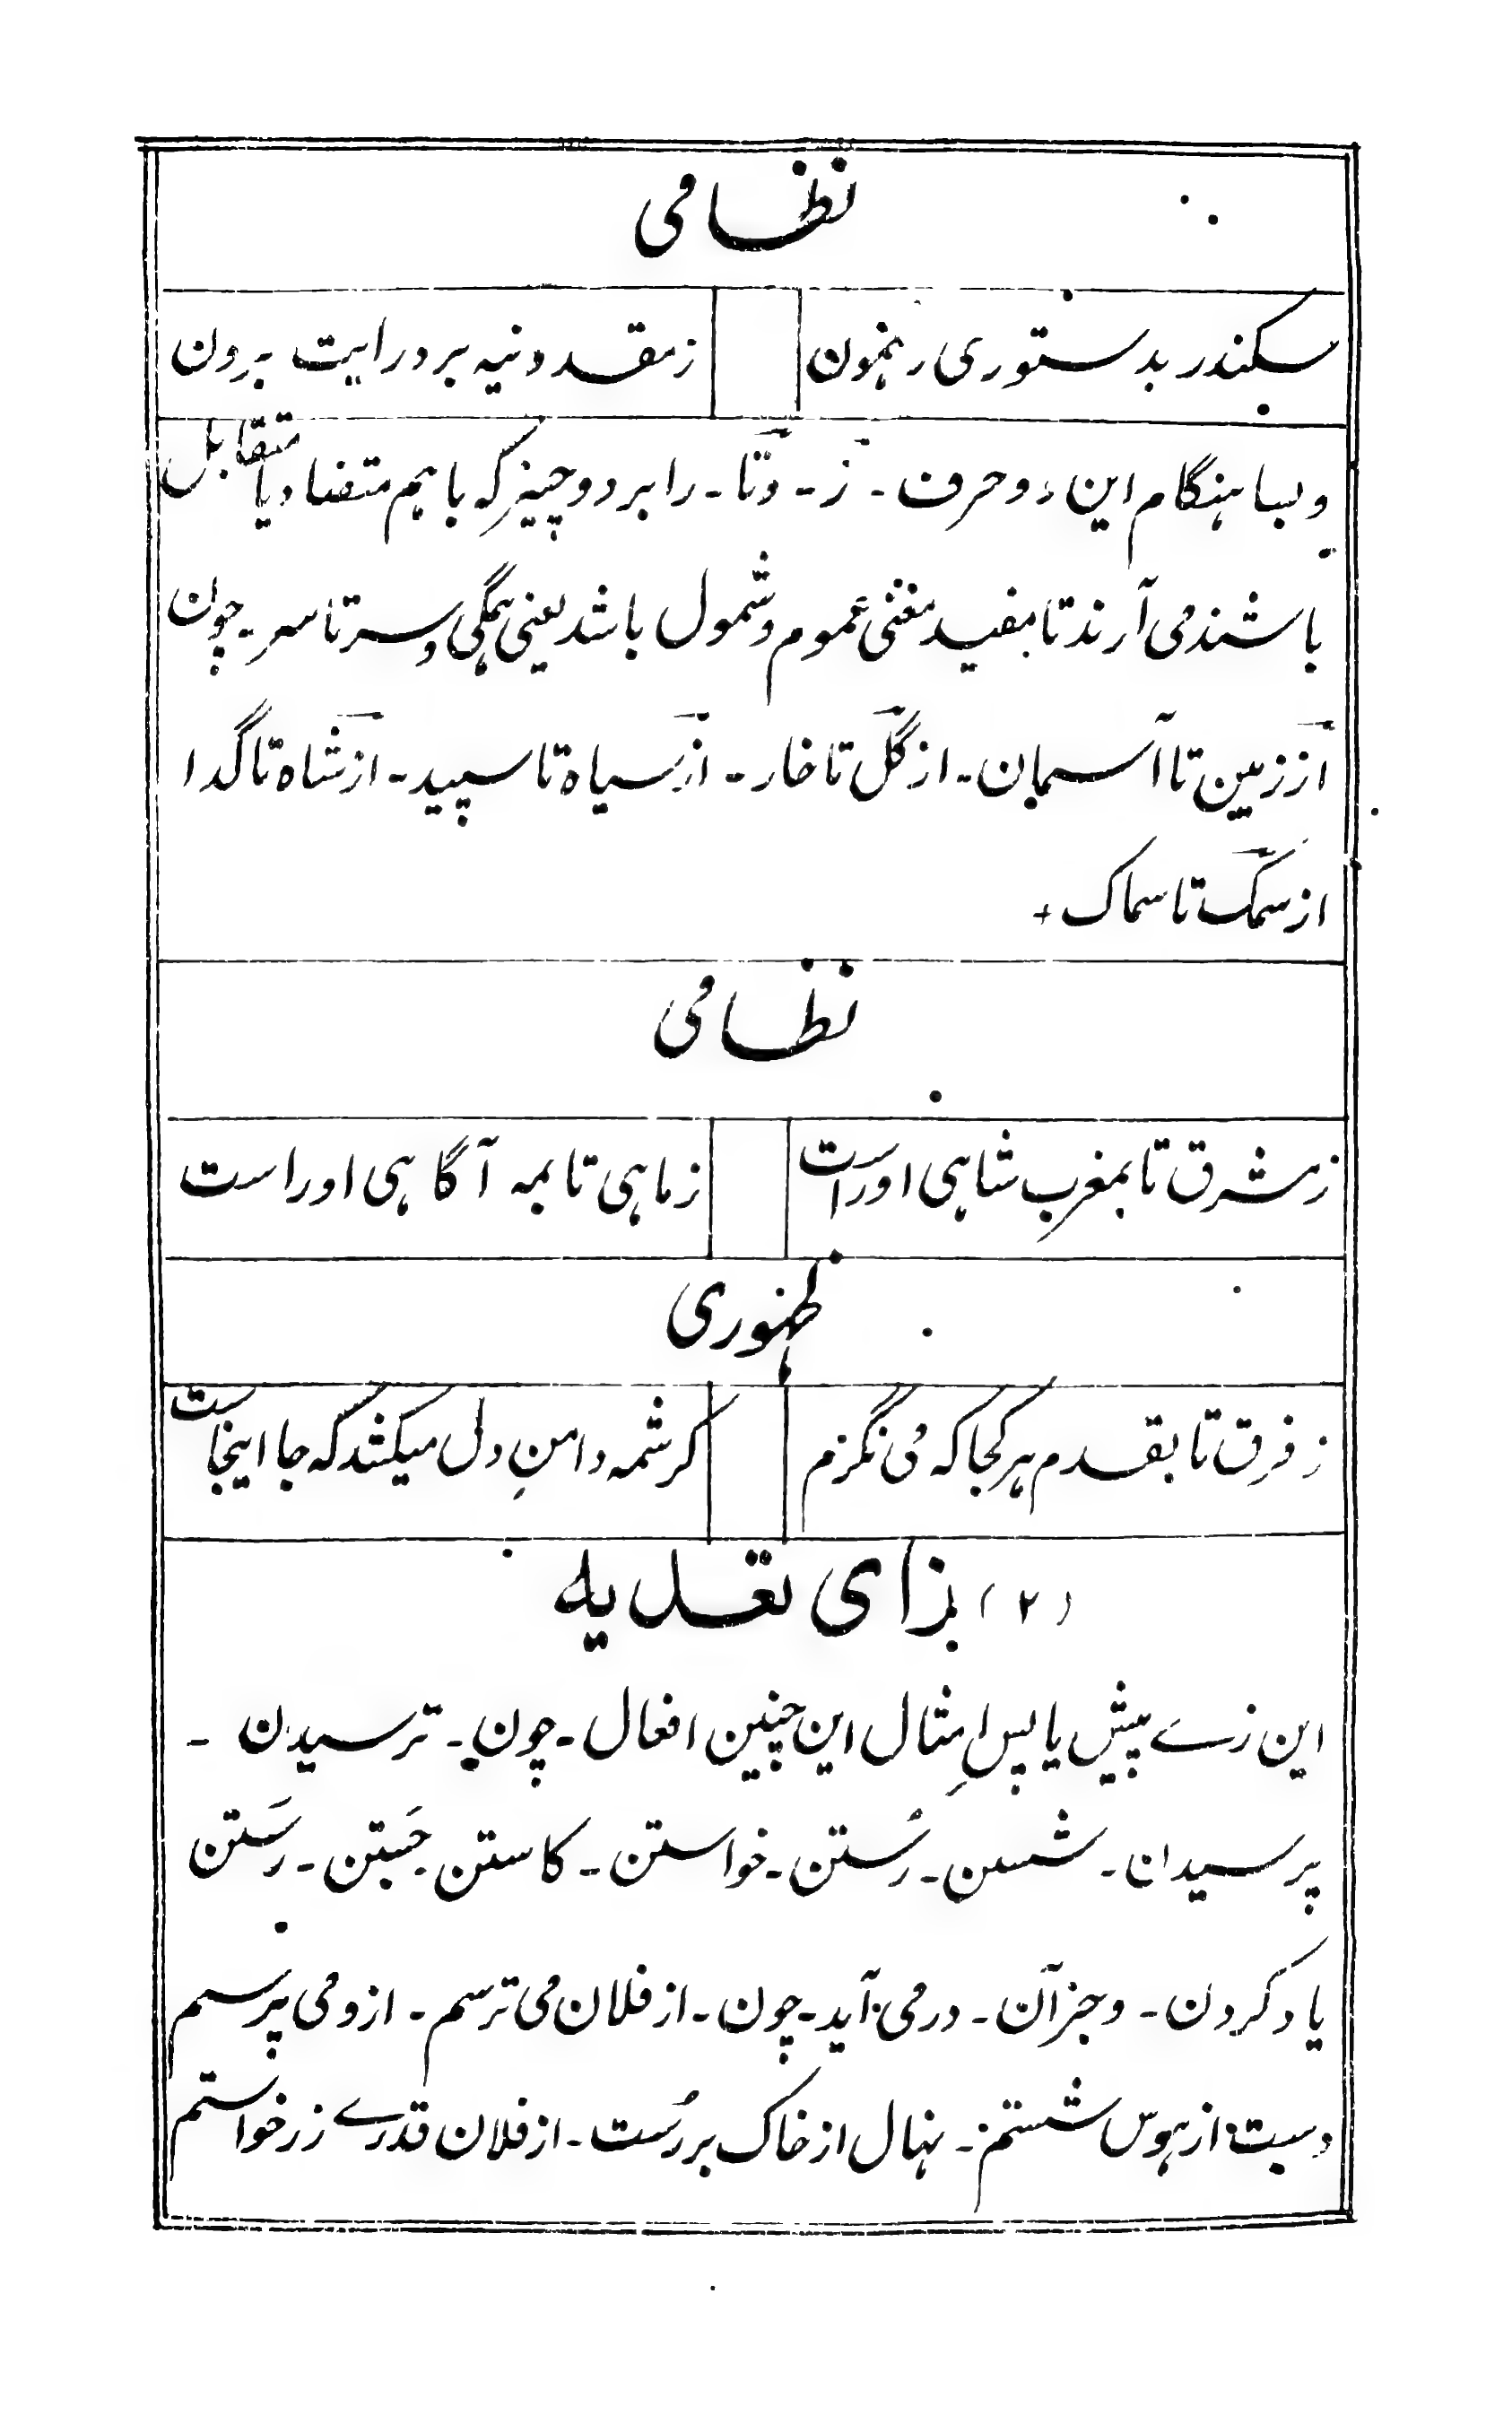 نظامی
سکندر بدستوری رہنمون
زمقدونیہ برد رایت برون
وبسا ہنگام این دو حرف ۔ ز ۔ وتا ۔ را بر دو چیز کہ باہم متضاد یا متقابل
باشند می آرند تا مفید معنی عموم و شمول باشد یعنی ہمگی و سرتاسر ۔ چون
از زمین تا آسمان ۔ از گل تا خار ۔ از سیاہ تا سپید ۔ از شاہ تا گدا
از سمک تا سماک +
نظامی
زمشرق تا بمغرب شاہی اوراست
زماہی تا بمہ آگاہی اوراست
ظہوری
زفرق تا بقدم ہر کجا کہ می نگرم
کرشمہ دامنِ دل میکشد کہ جا اینجاست
(۲) برای تعدیہ
این زے پیش یا پسِ امثال این چنین افعال ۔ چون ۔ ترسیدن ۔
پرسیدن ۔ شستن ۔ رُستن ۔ خواستن ۔ کاستن ۔ جَستن ۔ رَستن
یاد کردن ۔ وجز آن ۔ در می آید ۔ چون ۔ از فلان می ترسم ۔ از و می پرسم
دست از ہوس شستم ۔ نہال از خاک بر رُست ۔ از فلان قدرے زر خواستم